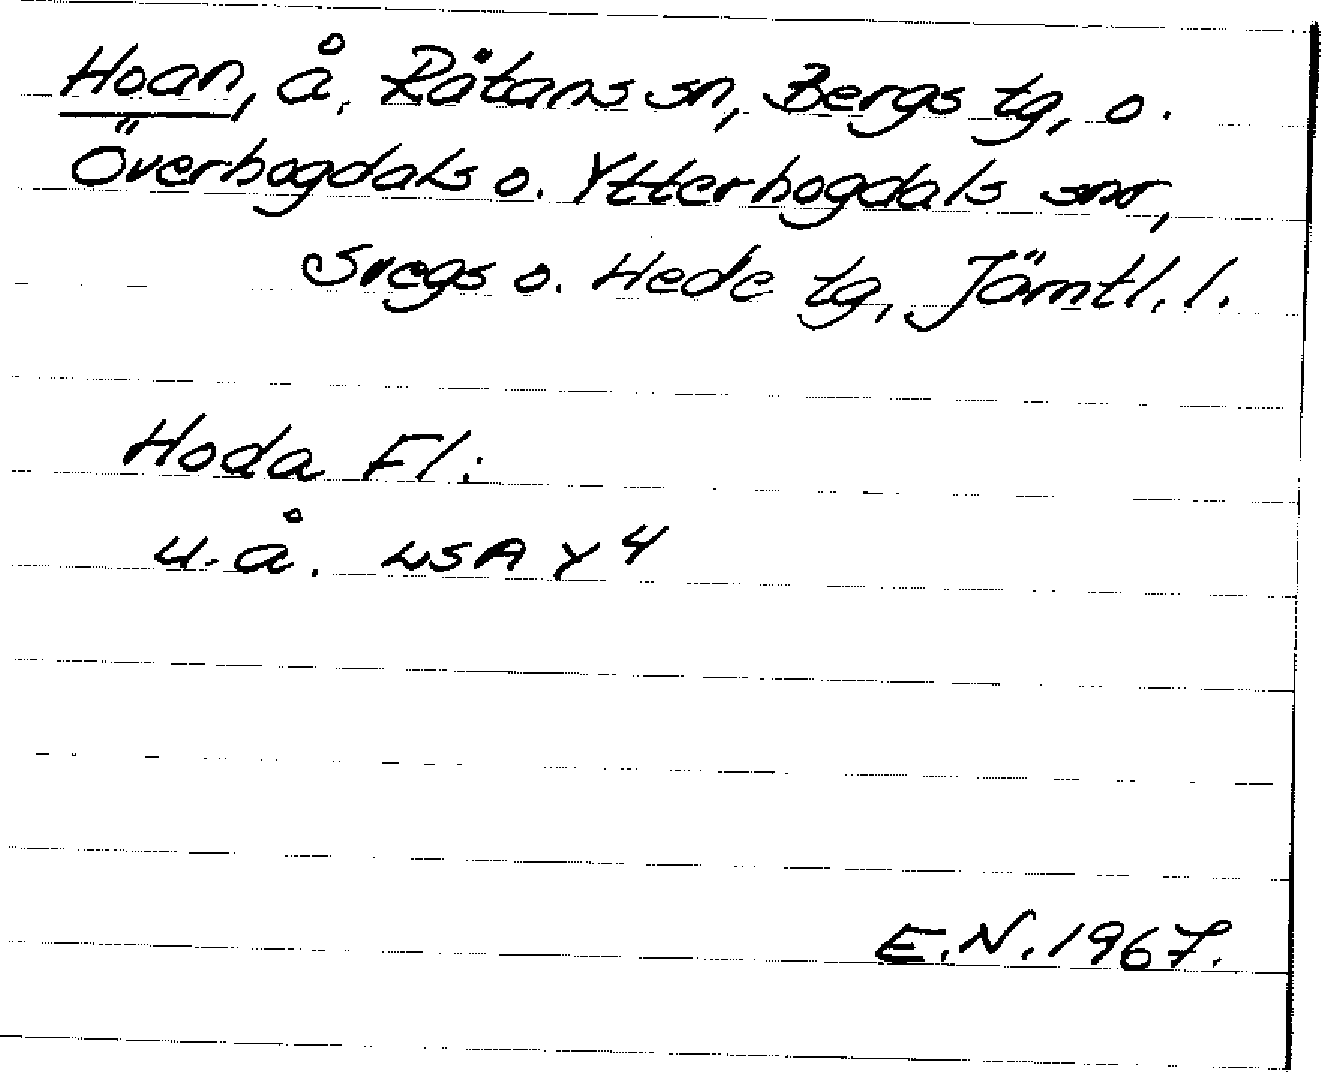 Hoan, å, Rätans sn, Bergs tg, o.
Överhogdals o. Ytterhogdals snr,
Svegs o. Hede tg, Jämtl. l.
Hoda Fl:
u.å. LSA Y 4
E.N. 1967.